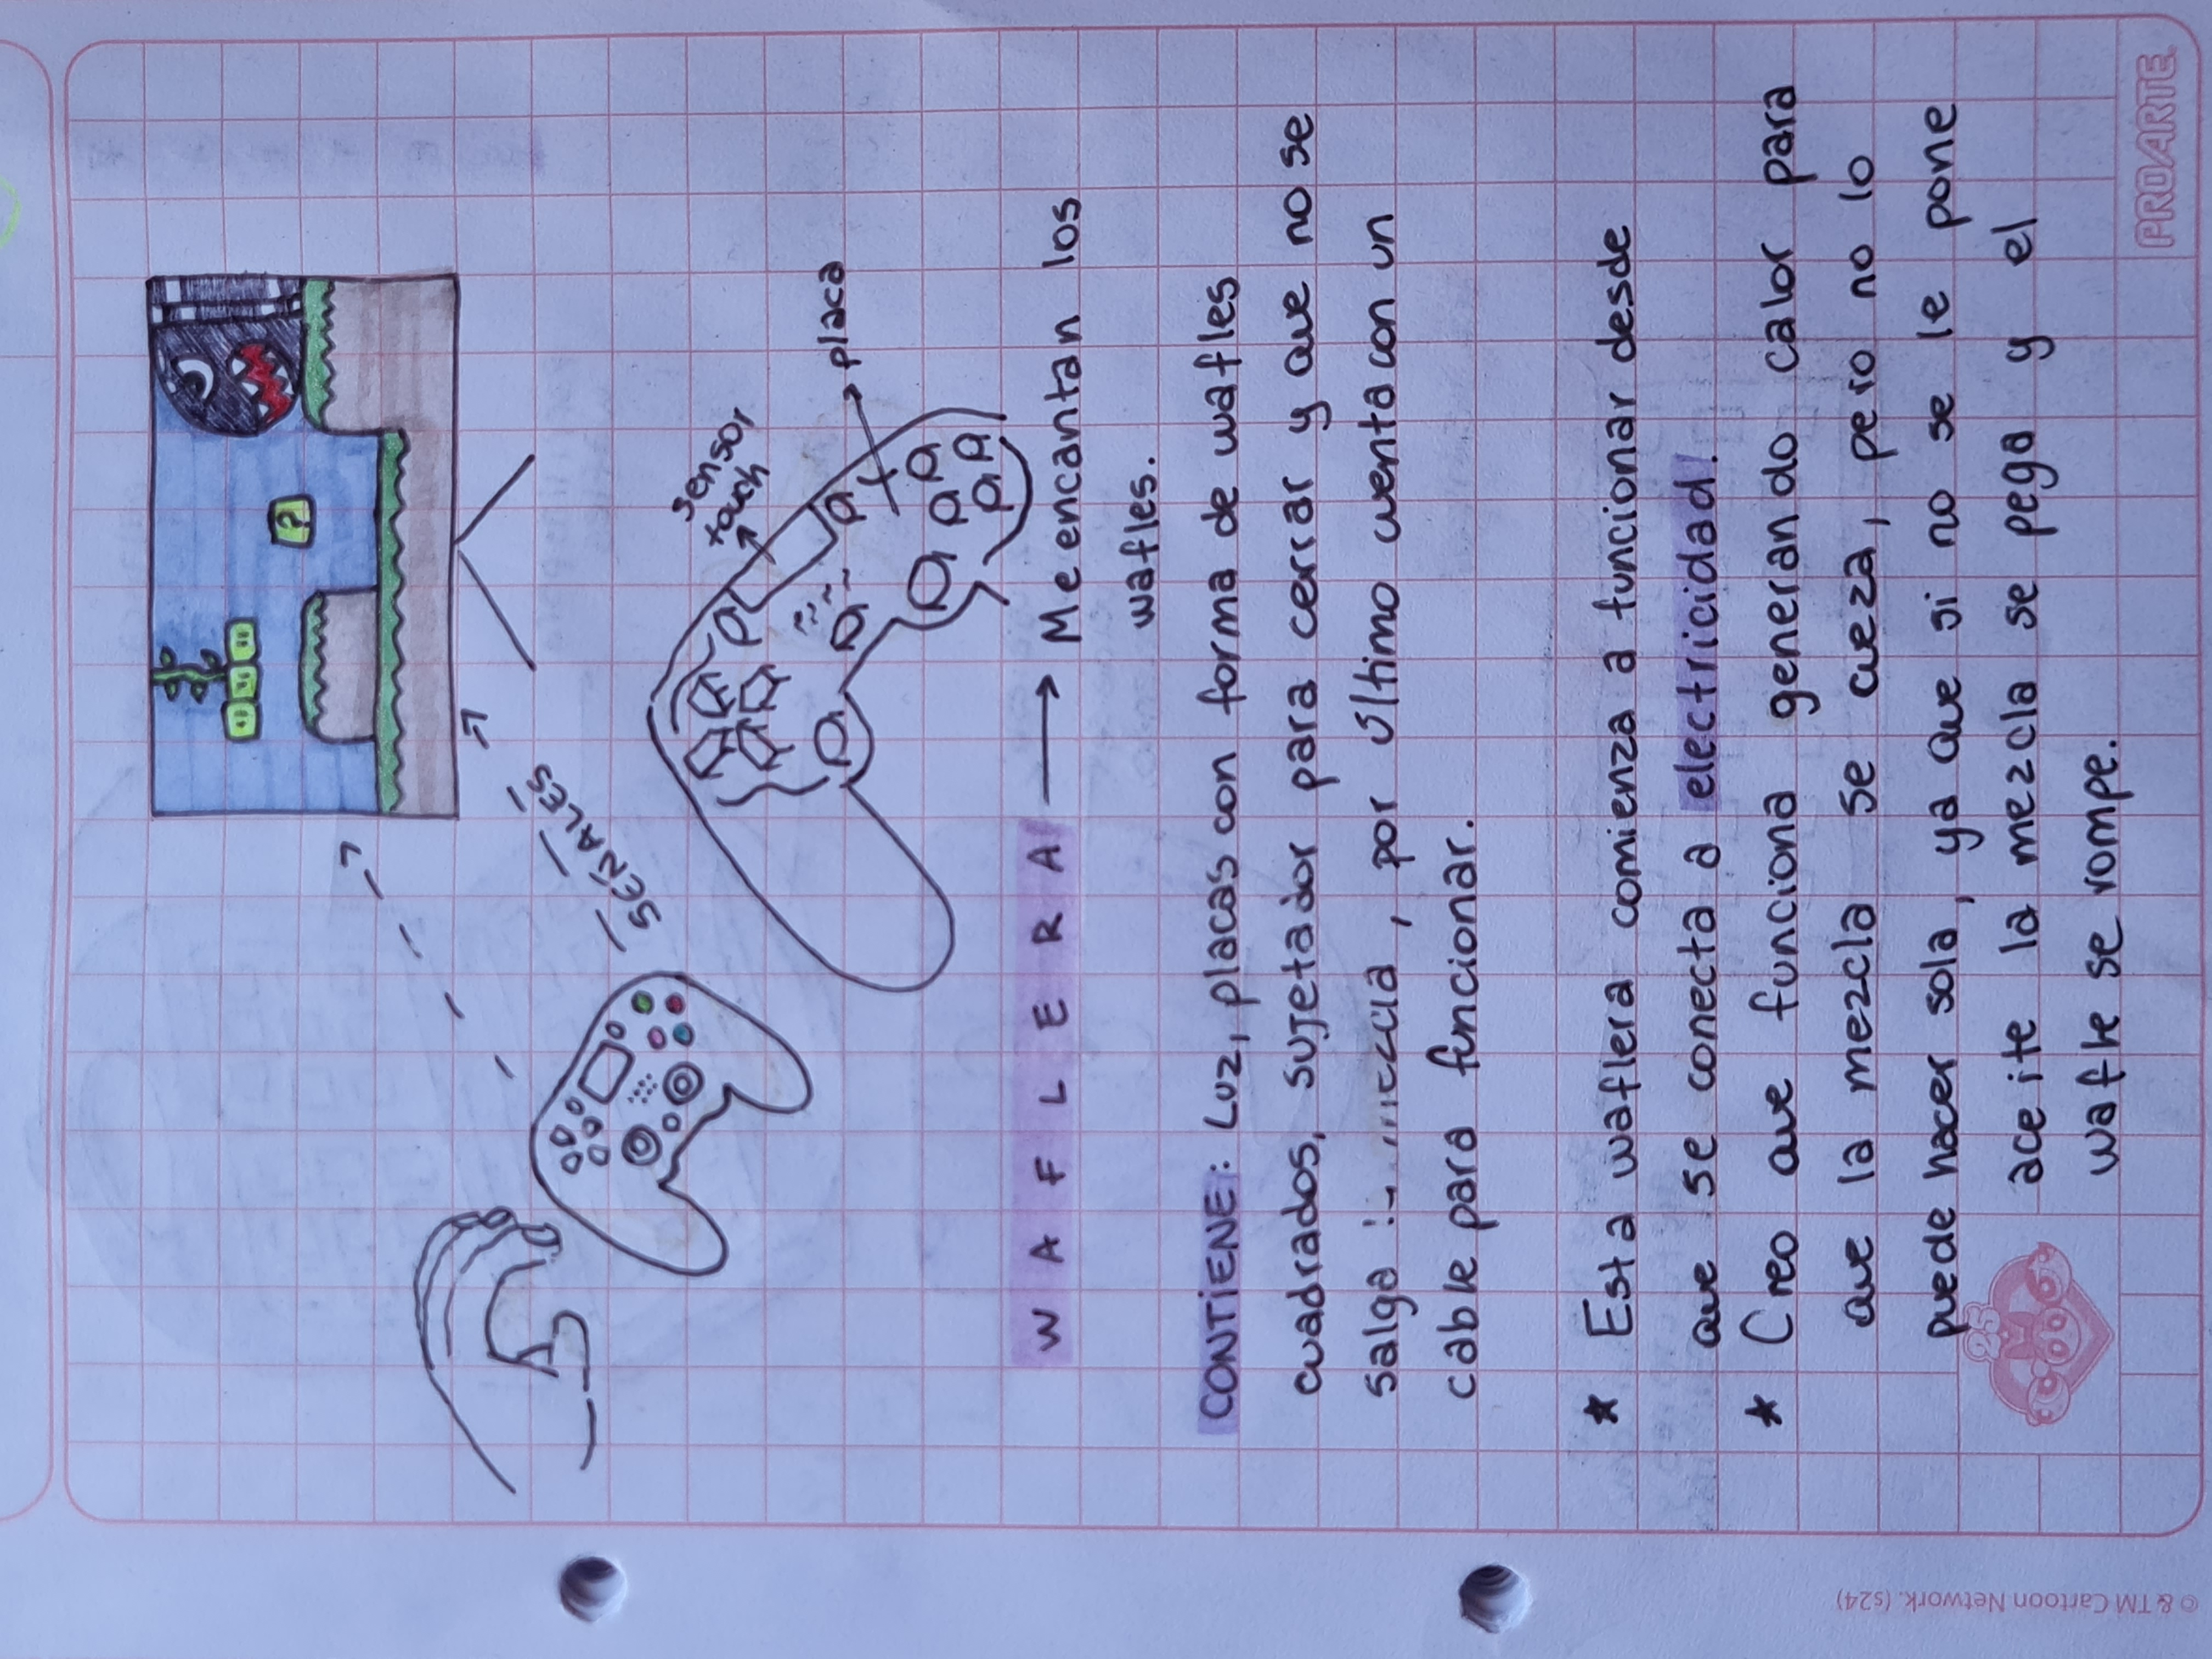 ?
SEÑALES
sensor
touch
placa
WAFLERA → Me encantan los
wafles.
CONTIENE: Luz, placas con forma de wafles
cuadrados, sujetador para cerrar y que no se
salga la mezcla, por último cuenta con un
cable para funcionar.
* Esta waflera comienza a funcionar desde
que se conecta a electricidad!
* Creo que funciona generando calor para
que la mezcla se cueza, pero no lo
puede hacer sola, ya que si no se le pone
aceite la mezcla se pega y el
wafle se rompe.
25
© & TM Cartoon Network. (s24)
PROARTE